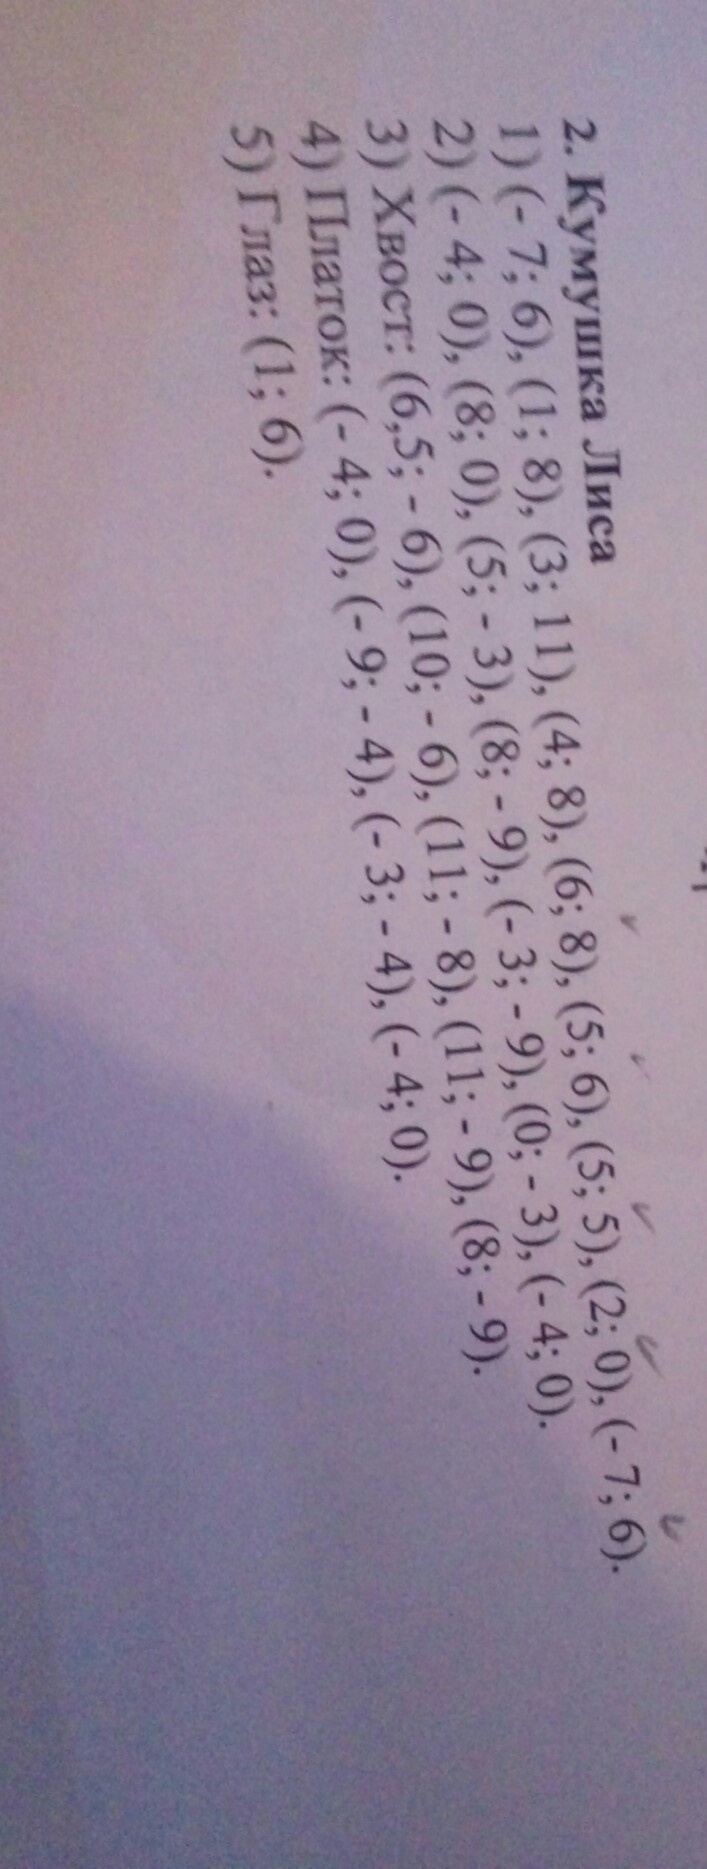 2. Кумушка Лиса
1) (- 7; 6), (1; 8), (3; 11), (4; 8), (6; 8), (5; 6), (5; 5), (2; 0), (- 7; 6).
2) (- 4; 0), (8; 0), (5; - 3), (8; - 9), (- 3; - 9), (0; - 3), (- 4; 0).
3) Хвост: (6,5; - 6), (10; - 6), (11; - 8), (11; - 9), (8; - 9).
4) Платок: (- 4; 0), (- 9; - 4), (- 3; - 4), (- 4; 0).
5) Глаз: (1; 6).